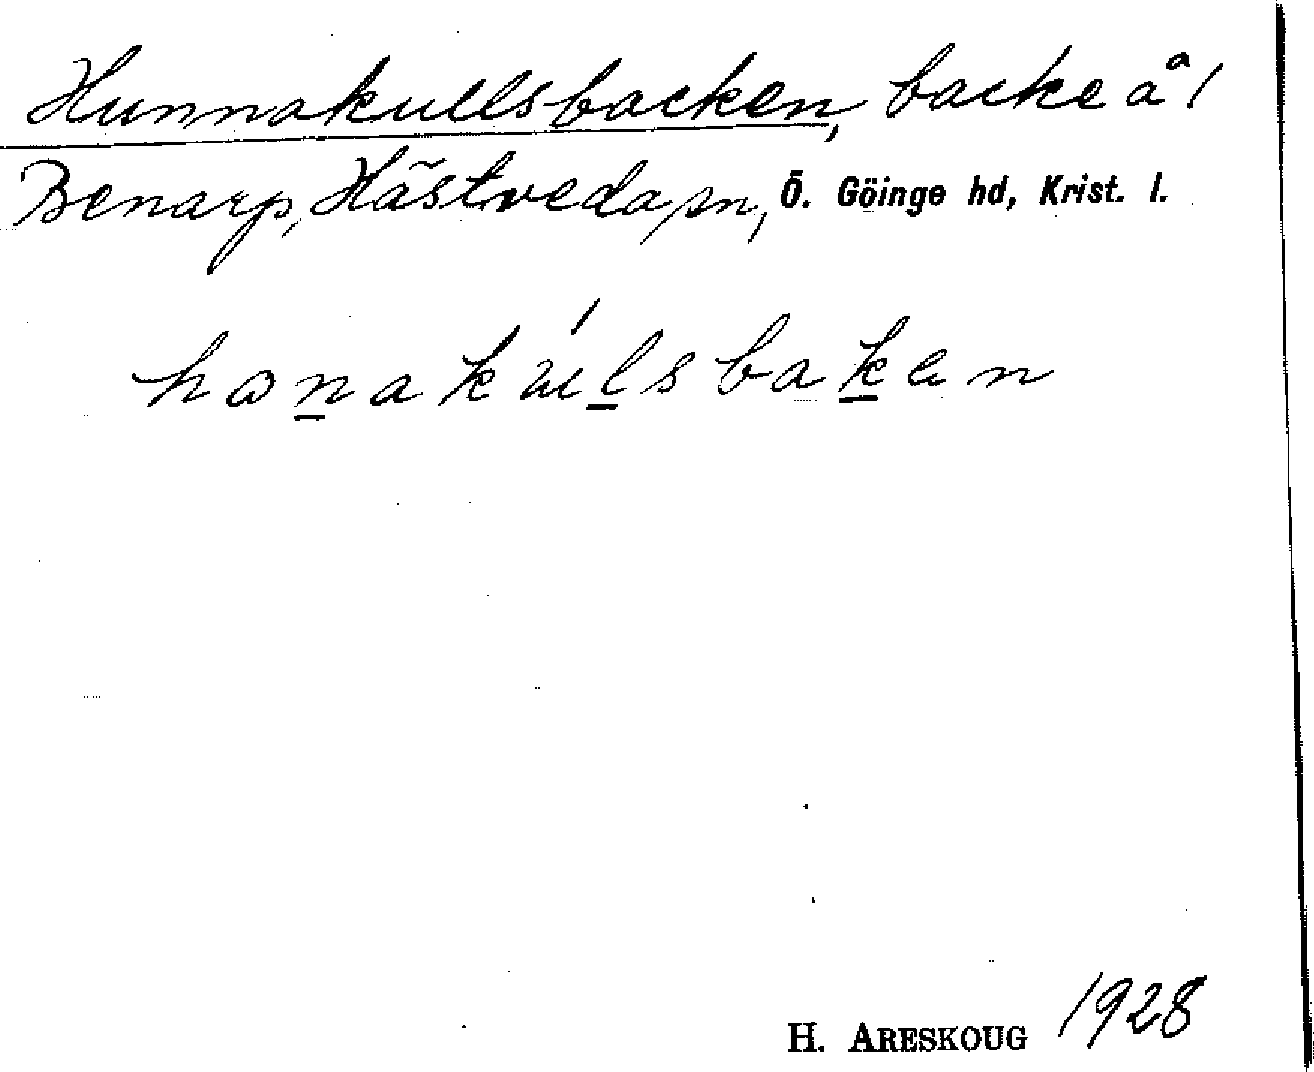 Hunnakullsbacken, backe å 1
Benarp, Hästveda sn, Ö. Göinge hd, Krist. l.
honakulsbaken
H. ARESKOUG 1928